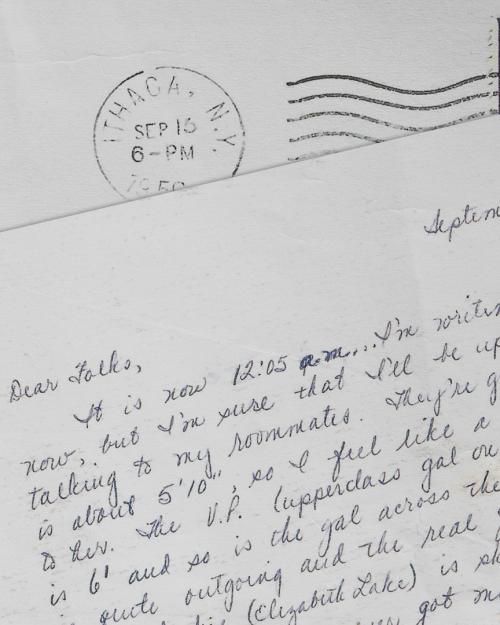 ITHACA, N.Y.
SEP 15
6-PM
Dear Folks,
It is now 12:05 a.m....I'm
now, but I'm sure that I'll be
talking to my roommates. They're
is about 5'10", so I feel like a
to her. The V.P. (upperclass gal
is 6' and so is the gal across the
quite outgoing and the real
(Elizabeth Lake) is
got